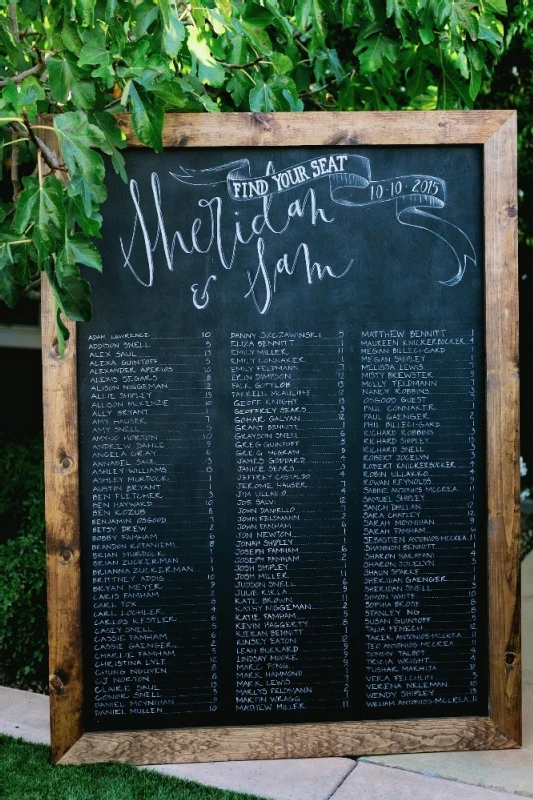 FIND YOUR SEAT
10·10·2015
Sheridan
& Sam
ADAM LAWRENCE 10
ADDISON SNELL 5
ALEX SAUL 13
ALEXA GUINTOFF 5
ALEXANDER APERIOS 10
ALEXIS SEGARS 8
ALISON NIGGEMAN 2
ALLIE SHIPLEY
ALLISON MCKENZIE 10
ALLY BRYANT
AMY HAUSER 7
AMY SNELL 5
AMY-JO HORTON
ANDREW DAHLE 9
ANGELA GRAY 6
ANNABEL SAUL
ASHLEY WILLIAMS 13
ASHLEY MURDOCK
AUSTIN BRYANT
BEN FLETCHER 3
BEN HAYWARD 10
BEN KOZUB 8
BENJAMIN OSGOOD 7
BETSY DREW 2
BOBBY FAMHAM 6
BRANDON KOTANIEMI 8
BRIAN MURDOCK 1
BRIAN ZUCKERMAN 1
BRIANNA ZUCKERMAN 1
BRITTNEY ADDIS 10
BRYAN MEYER 9
CARIS FAMHAM 2
CARL FOX
CARL LOCHLER 4
CARLOS KESTLER 6
CASEY SNELL 5
CASSIE FAMHAM 6
CASSIE GAENGER
CHARLIE FAMHAM 5
CHRISTINA LYLE 12
CHUNG NGUYEN 8
CJ NORTON 8
CLAIRE SAUL 13
CONOR SNELL 5
DANIEL MOYNIHAN
DANIEL MULLEN 10
DANNY SZCZAWINSKI 5
ELIZA BENNITT 1
EMILY MILLER 11
EMILY CONNAKER 1
EMILY FELDMANN 7
ERIN SIMPSON 12
FALK GOTTLOB 13
FARRELL MCAULIFFE 12
GEOFF KNIGHT 13
GEOFFREY SEARS 3
GOHAR GALYAN 12
GRANT BENNITT 1
GRAYSON SNELL 6
GREG GUINTOFF 5
GREG MCGRATH 9
JAMES GODDARD 4
JANICE SEARS 3
JEFFREY CASTALDO 4
JEROMIE HAUSER 7
JIM ULLAKO 4
JOE SALVI 12
JOHN DANIELLO 7
JOHN FELDMANN 2
JOHN FAMHAM 6
JON NEWTON 1
JONAH SHIPLEY
JOSEPH FAMHAM 6
JOSEPH FAMHAM 2
JOSH SHIPLEY
JOSH MILLER 11
JUDSON SNELL 5
KATE BROWN 11
KATHY NIGGEMAN 2
KATIE FAMHAM 5
KEVIN HAGGERTY 8
KIERAN BENNITT 1
KINSEY EATON 12
LEAH BURKARD 9
LINDSAY MOORE 9
MARC FONG
MARK HAMMOND
MARK LEWIS 7
MARLYS FELDMANN 2
MARTIN WRAGG
MATHEW MILLER 11
MATTHEW BENNITT 1
MAUREEN KNICKERBOCKER 4
MEGAN BILLECI-GARD 1
MEGAN SHIPLEY 1
MELISSA LEWIS
MISTY BREWSTER
MOLLY FELDMANN 7
NANCY ROBBINS 2
OSGOOD GUEST 7
PAUL CONNAKER 1
PAUL GAENGER 2
PHIL BILLECI-GARD 1
RICHARD ROBBINS 3
RICHARD SHIPLEY 13
RICHARD SNELL 5
ROBERT JOCELYN 3
ROBERT KNICKERBOCKER 4
ROBIN ULLAKKO 4
ROWAN REYNOLDS 9
SABINE ANTONIUS-MCCREA 11
SAMUEL SHIPLEY
SANCH DHILLAN 12
SARA CHATLEY
SARAH MOYNIHAN 9
SARAH FAMHAM 6
SEBASTIEN ANTONIOS-MCCREA 11
SHANNON BENNITT 1
SHARON NAKATANI 4
SHARON JOCELYN 3
SHAUN SPARKE
SHERIDAN GAENGER
SHERIDAN SNELL 5
SIMON WHITE 10
SOPHIA BROSE 8
STANLEY NG 8
SUSAN GUINTOFF 5
TALIA FENECH
TAREK ANTONIOS-MCCREA 11
TEO ANTONIOS-MCCREA 11
TOMMY TALBOT 4
TRICIA WRIGHT 4
TUSHAR MAKHIJA 12
VERA PELLHIN 3
VERENA NELEMAN 10
WENDY SHIPLEY 13
WILLIAM ANTONIOS-MCCREA 11